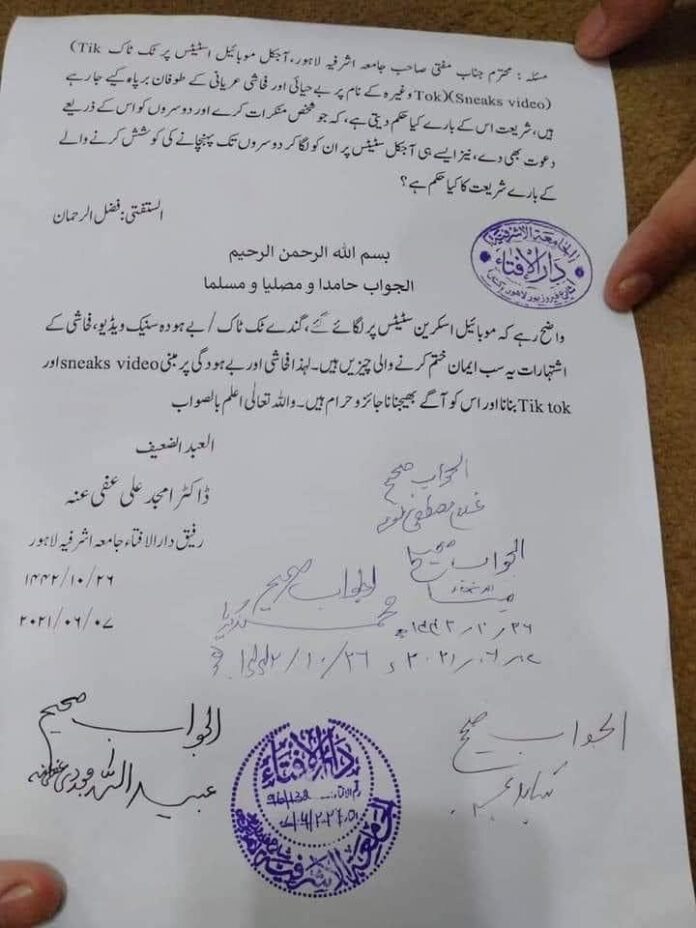 مسئلہ: محترم جناب مفتی صاحب جامعہ اشرفیہ لاہور، آجکل موبائیل اسٹیٹس پر ٹک ٹاک (Tik
Tok)(Sneaks video) وغیرہ کے نام پر بے حیائی اور فحاشی عریانی کے طوفان برپاہ کیے جارہے
ہیں، شریعت اس کے بارے کیا حکم دیتی ہے، کہ جو شخص منکرات کرے اور دوسروں کو اس کے ذریعے
دعوت بھی دے، نیز ایسے ہی آجکل سٹیٹس پر ان کو لگا کر دوسروں تک پہنچانے کی کوشش کرنے والے
کے بارے شریعت کا کیا حکم ہے؟
المستفتی: فضل الرحمان
الجامعۃ الاشرفیۃ
دارالافتاء
بسم الله الرحمن الرحيم
الجواب حامدا و مصليا و مسلما
واضح رہے کہ موبائیل اسکرین سٹیٹس پر لگائے گئے، گندے ٹک ٹاک / بے ہودہ سنیک ویڈیو، فحاشی کے
اشتہارات یہ سب ایمان ختم کرنے والی چیزیں ہیں۔ لہذا فحاشی اور بے ہودگی پر مبنی sneaks video اور
Tik tok بنانا اور اس کو آگے بھیجنا ناجائز و حرام ہیں۔ واللہ تعالٰی اعلم بالصواب
العبد الضعیف
ڈاکٹر امجد علی عفی عنہ
رفیق دارالافتاء جامعہ اشرفیہ لاہور
۱۴۴۲/۱۰/۲۶
۲۰۲۱/۰۶/۰۷
الجواب صحیح
غلام مصطفی
الجواب صحیح
الجواب صحیح
محمد زکریا
الجواب صحیح
عبید اللہ
الجواب صحیح
دارالافتاء
الجامعۃ الاشرفیۃ